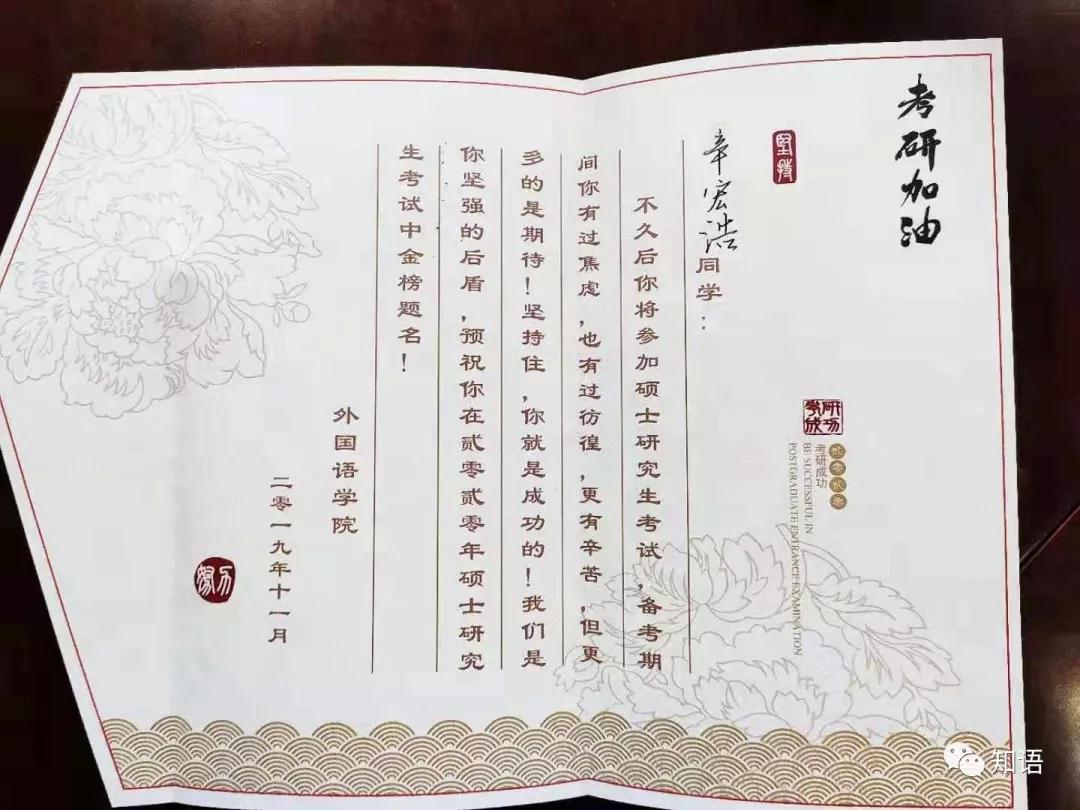 考研加油
坚持
辛宏浩同学：
不久后你将参加硕士研究生考试，备考期
间你有过焦虑，也有过彷徨，更有辛苦，但更
多的是期待！坚持住，你就是成功的！我们是
你坚强的后盾，预祝你在贰零贰零年硕士研究
生考试中金榜题名！
外国语学院
二零一九年十一月
考研成功
贰零贰零
考研成功
BE SUCCESSFUL IN
POSTGRADUATE ENTRANCE EXAMINATION
知语